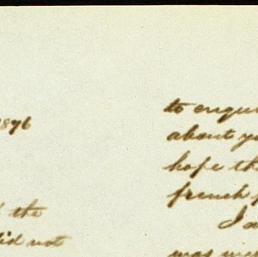 1896
the
did not
to enqui
about yo
hope th
french
In
was